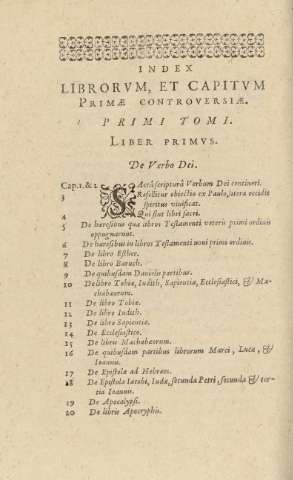 INDEX
LIBRORVM, ET CAPITVM
PRIMÆ CONTROVERSIÆ.
PRIMI TOMI.
LIBER PRIMVS.
De Verbo Dei.
Cap. 1. & 2. SAcra scriptura Verbum Dei contineri.
3 Refellitur obiectio ex Paulo, litera occidit
spiritus viuificat.
4 Qui sint libri sacri.
5 De hæresibus qua libros Testamenti veteris primi ordinis
oppugnarunt.
6 De hæresibus in libros Testamenti noui primi ordinis.
7 De libro Esther.
8 De libro Baruch.
9 De quibusdam Danielis partibus.
10 De libro Tobiæ, Iudith, Sapientia, Ecclesiastici, & Ma-
chabæorum.
11 De libro Tobiæ.
12 De libro Iudith.
13 De libro Sapientia.
14 De Ecclesiastico.
15 De libris Machabæorum.
16 De quibusdam partibus librorum Marci, Luca, &
Ioannis.
17 De Epistola ad Hebræos.
18 De Epistola Iacobi, Iuda, secunda Petri, secunda & ter-
tia Ioannis.
19 De Apocalypsi.
20 De libris Apocryphis.